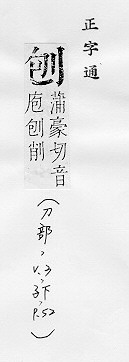 正字通
刨
蒲豪切音
庖刨削
(刀部，V.3，子下，P.52)